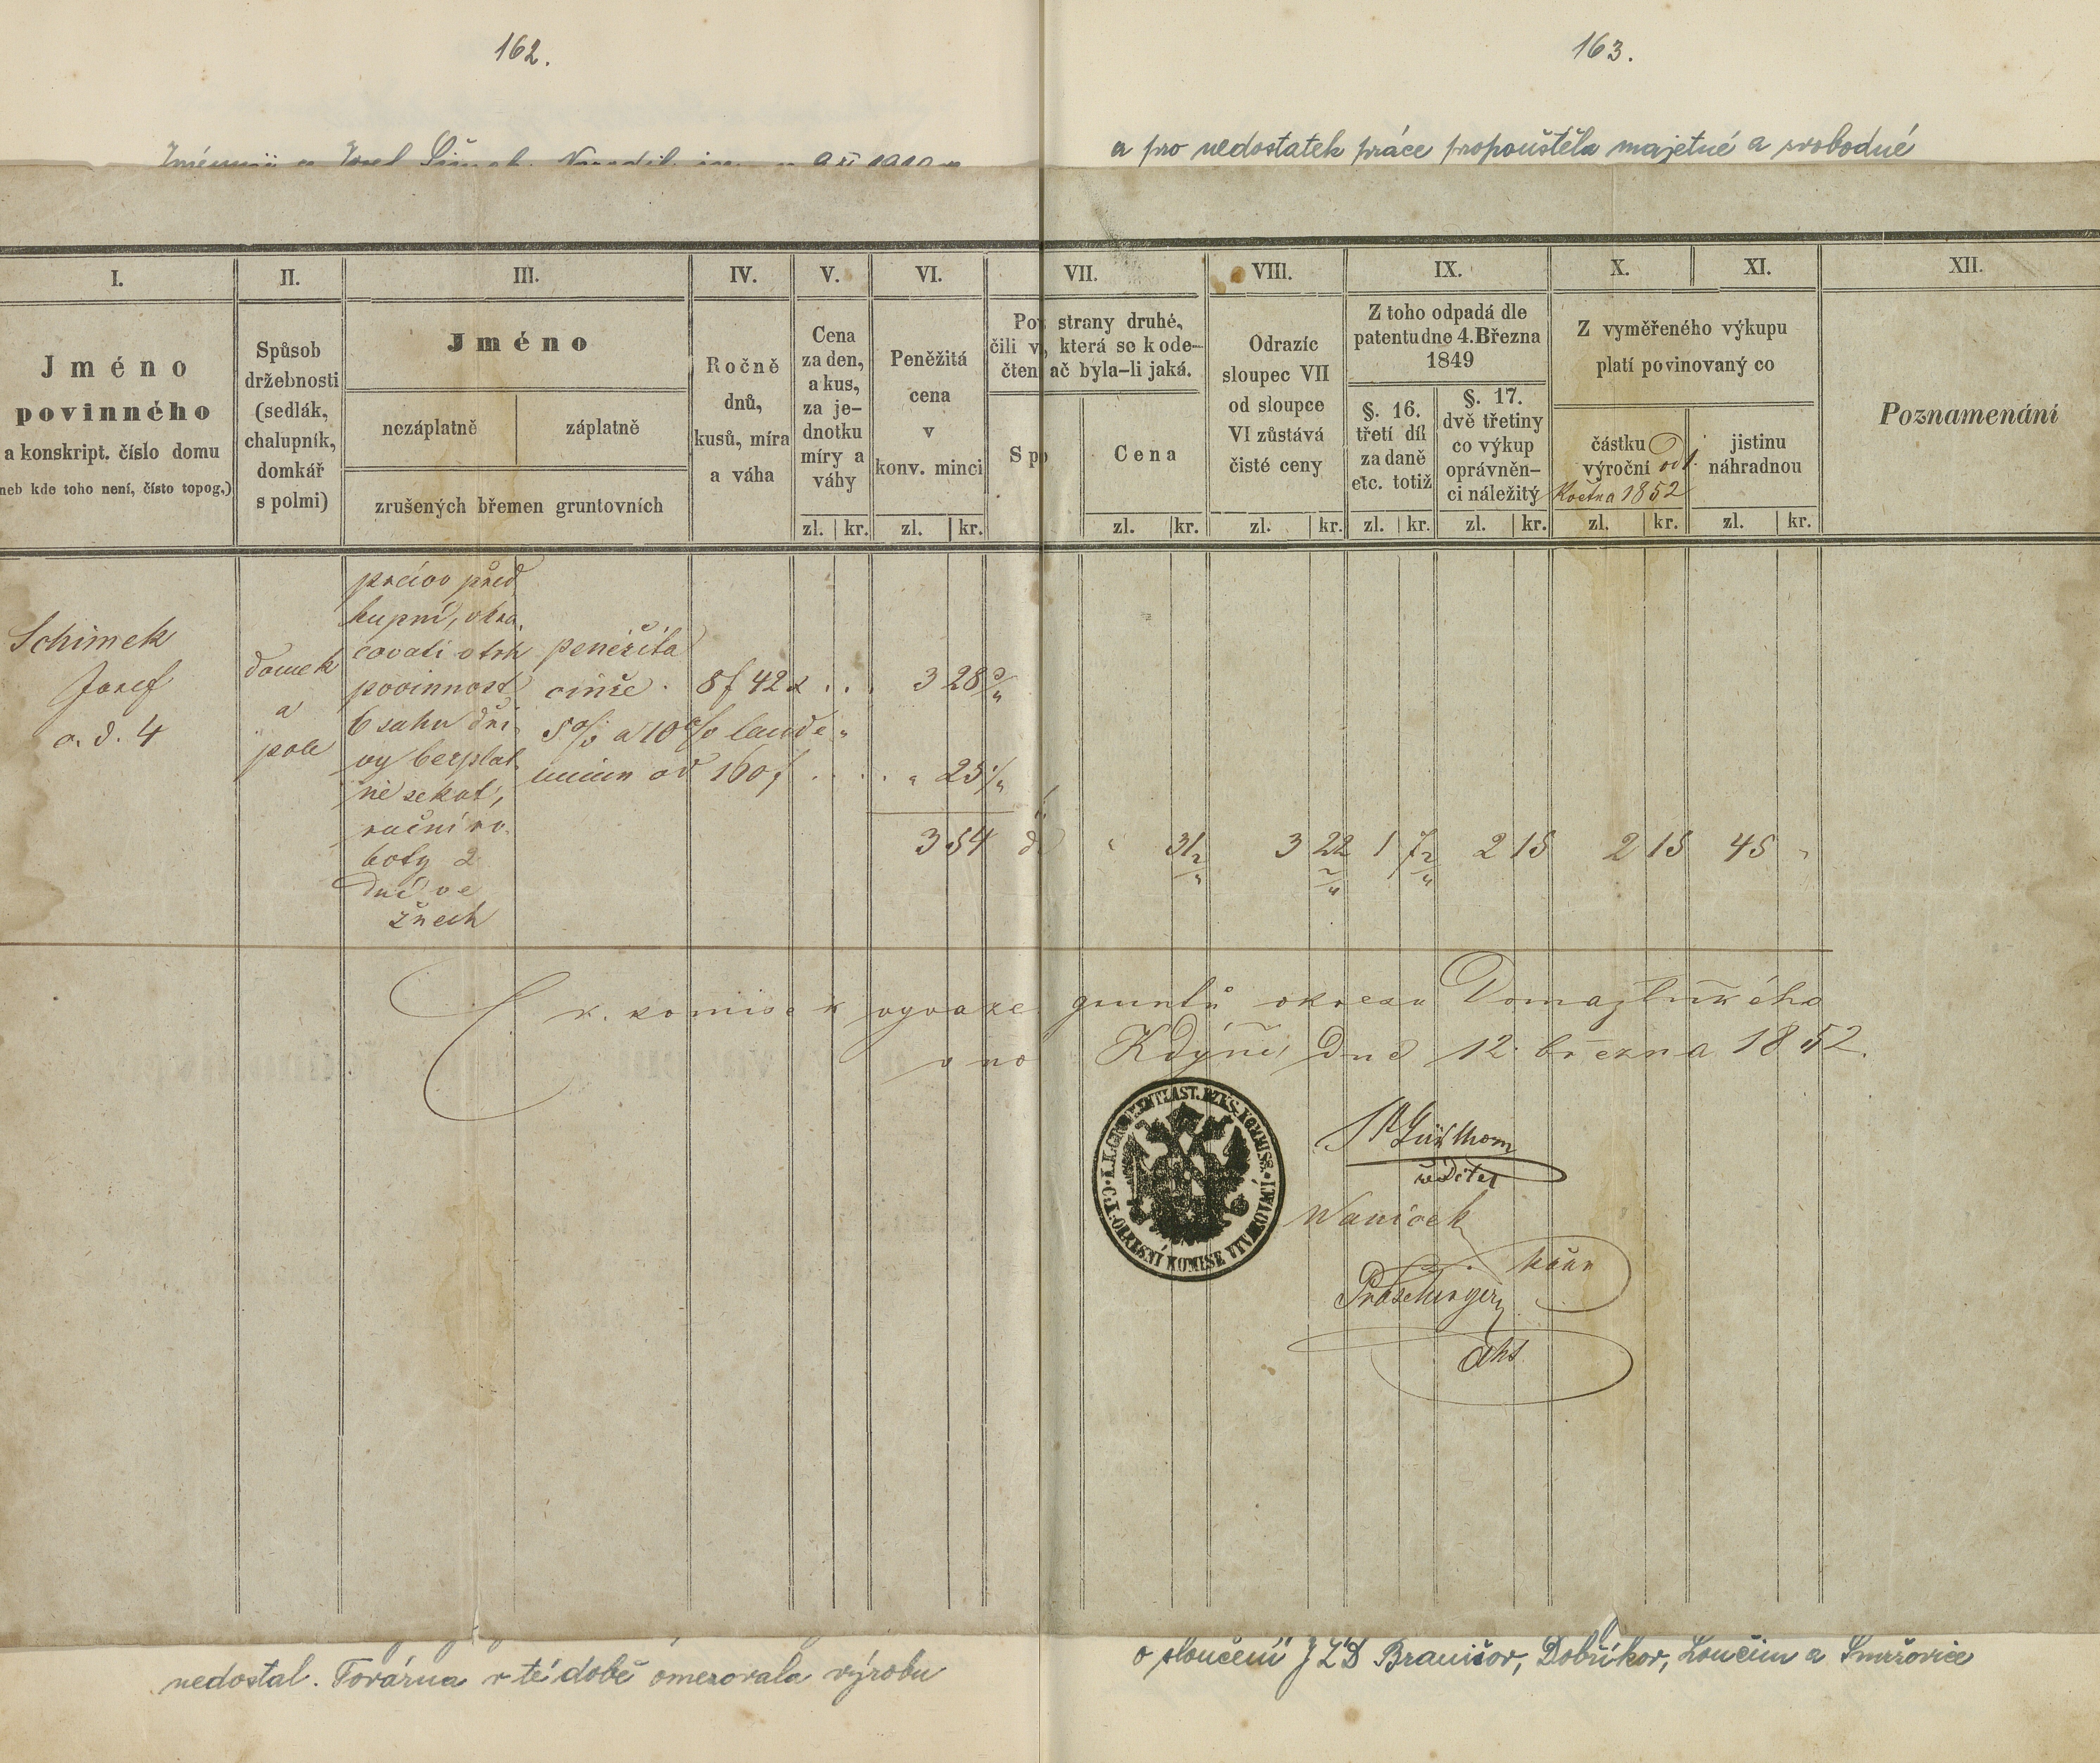 162.
163.
a pro nedostatek práce propouštěla majetné a svobodné
I.
II.
III.
IV.
V.
VI.
VII.
VIII.
IX.
X.
XI.
XII.
Jméno
povinného
a konskript. číslo domu
neb kde toho není, čísto topog.)
Spůsob
držebnosti
(sedlák,
chalupník,
domkář
s polmi)
Jméno
nezáplatně
záplatně
zrušených břemen gruntovních
Ročně
dnů,
kusů, míra
a váha
Cena
za den,
a kus,
za je-
dnotku
míry a
váhy
zl. kr.
Peněžitá
cena
v
konv. minci
zl. kr.
strany druhé,
čili která se k ode-
čten ač byla-li jaká.
Cena
zl. kr.
Odrazíc
sloupec VII
od sloupce
VI zůstává
čisté ceny
zl. kr.
Z toho odpadá dle
patentu dne 4. Března
1849
§. 16.
třetí díl
za daně
etc. totiž
zl. kr.
§. 17.
dvě třetiny
co výkup
oprávněn-
ci náležitý
zl. kr.
Z vyměřeného výkupu
platí povinovaný co
částku
výroční od 1.
Května 1852
zl. kr.
jistinu
náhradnou
zl. kr.
Poznamenání
Schimek
Josef
č. d. 4
domek
a
pole
právo před
kupní,
povinnost
6 sahu dří
vy bezplat
ně sekat,
roční ro
boty 2
dní ve
žnech
peněžitá
činže 8f 42x 3 28
5% a 10% laude
mium od 160f 25
3 54 31 3 22 1 7 2 15 2 15 45
C. k. komise k vyvaze gruntů okresu Domažlického
v Kdýni, dne 12. března 1852.
C. K. OKRESNÍ KOMISE VYVAZOVACÍ
řiditel
Waniček
nedostal. Továrna v té době omezovala výrobu
o sloučení JZD Branišov, Dobříkov, Loučim a Smržovice